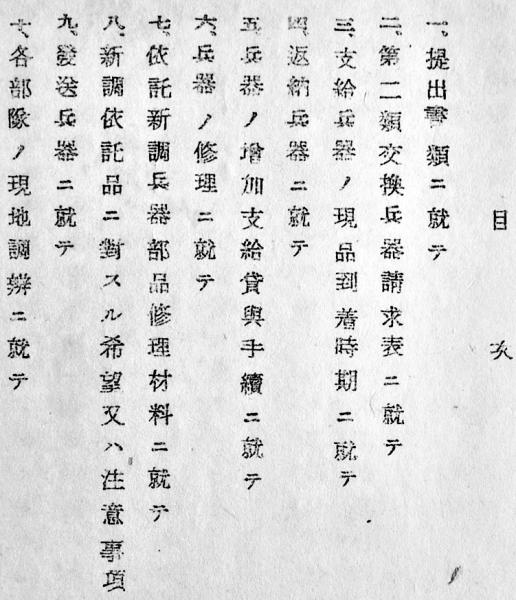 目次
一、提出書類ニ就テ
二、第二類交換兵器請求表ニ就テ
三、支給兵器ノ現品到着時期ニ就テ
四、返納兵器ニ就テ
五、兵器ノ增加支給貸與手續ニ就テ
六、兵器ノ修理ニ就テ
七、依託新調兵器部品修理材料ニ就テ
八、新調依託品ニ對スル希望又ハ注意事項
九、發送兵器ニ就テ
十、各部隊ノ現地調辨ニ就テ